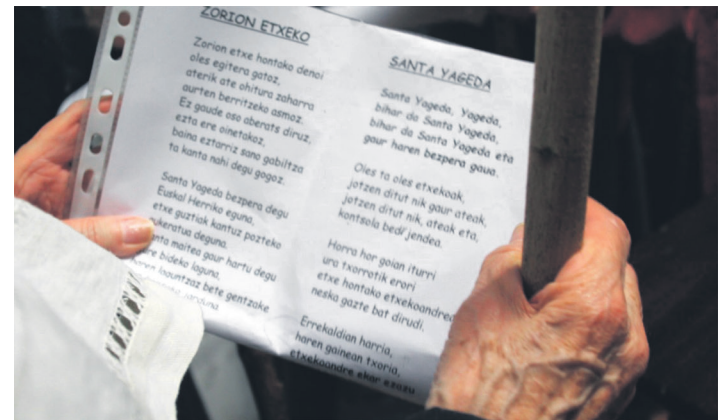 ZORION ETXEKO
Zorion etxe hontako denoi
oles egitera gatoz,
aterik ate ohitura zaharra
aurten berritzeko asmoz.
Ez gaude oso aberats diruz,
ezta ere oinetakoz,
baina eztarriz sano gabiltza
ta kanta nahi degu gogoz.
Santa Yageda bezpera degu
Euskal Herriko eguna,
etxe guztiak kantuz pozteko
deguna.
maitea gaur hartu degu
bideko laguna,
laguntzaz bete gentzake
SANTA YAGEDA
Santa Yageda, Yageda,
bihar da Santa Yageda,
bihar da Santa Yageda eta
gaur haren bezpera gaua.
Oles ta oles etxekoak,
jotzen ditut nik gaur ateak,
jotzen ditut nik, ateak eta,
kontsola bedi jendea.
Horra hor goian iturri
ura txorrotik erori
etxe hontako etxekoandrea
neska gazte bat dirudi.
Errekaldian harria,
haren gainean txoria,
etxekoandre ekar ezazu